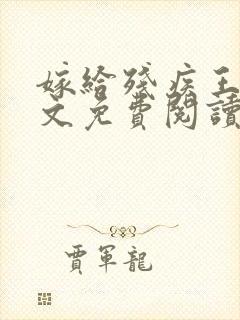 嫁給殘疾王
文免費閱讀
賈軍龍